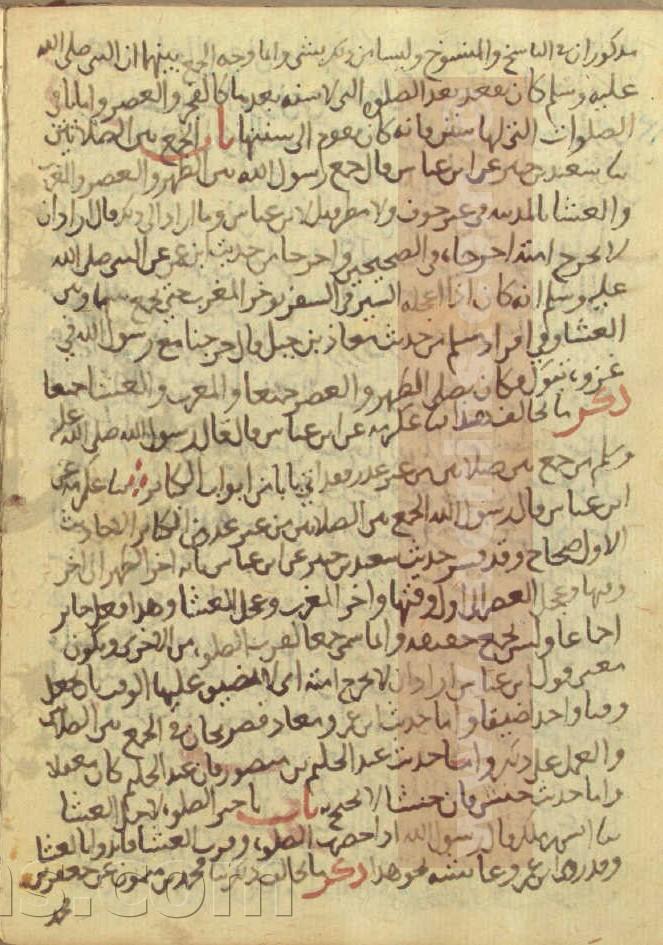 مذكوران في الناسخ والمنسوخ وليسا من ذكر بشي واما وجه الجمع بينهما ان النبي صلى الله
عليه وسلم كان يقعد بعد الصلوه التي لا سنه بعدها كالفجر والعصر واما
الصلوات التي لها سنن فانه كان يقوم الى سننها باب الجمع بين الصلاتين
سا سعيد بن جبير عن ابن عباس قال جمع رسول الله بين الظهر والعصر والمغرب
والعشا بالمدينه في غير خوف ولا مطر قيل لابن عباس وما اراد الى ذلك قال اراد ان
لا يحرج امته اخرجا في الصحيحين واخرجا من حديث ابن عمر عن النبي صلى الله
عليه وسلم انه كان اذا اعجله السير في السفر يوخر المغرب حتى يجمع بينها وبين
العشا وفي افراد مسلم من حديث معاذ بن جبل قال خرجنا مع رسول الله في
غزوه تبوك فكان يصلي الظهر والعصر جميعا والمغرب والعشا جميعا
ذكر ما يخالف هذا سا عكرمه عن ابن عباس قال قال رسول الله صلى الله عليه
وسلم من جمع بين صلاتين من غير عذر فقد اتى بابا من ابواب الكبائر سا عكرمه عن
ابن عباس قال رسول الله الجمع بين الصلاتين من غير عذر من الكبائر الحديث
الاول صحاح وقد فسر حديث سعيد بن جبير عن ابن عباس بانه اخر الظهر الى اخر
وقتها وعجل العصر الى اول وقتها واخر المغرب وعجل العشا وهذا فعل جائز
اجماعا وليس بجمع حقيقه وانما سمي جمعا لقرب الصلوه من الاخرى ويكون
معنى قول ابن عباس اراد ان لا يحرج امته اي لا يضيق عليها الوقت بان يجعل
وقتا واحدا ضيقا واما حديث ابن عمر ومعاذ فصريحان في الجمع بين الصلاتين
والعمل على ذلك واما حديث عبد الحليم بن منصور فان عبد الحليم كان مغفلا
واما حديث حنش فان حنشا لا يحتج به باب تاخير الصلوه لاجل العشا
سا انس بن مالك قال رسول الله اذا حضرت الصلوه وقرب العشا فابدوا بالعشا
وقد رواه ابن عمر وعائشه نحو هذا ذكر ما يخالف ذلك سا محمد بن ميمون عن جعفر بن